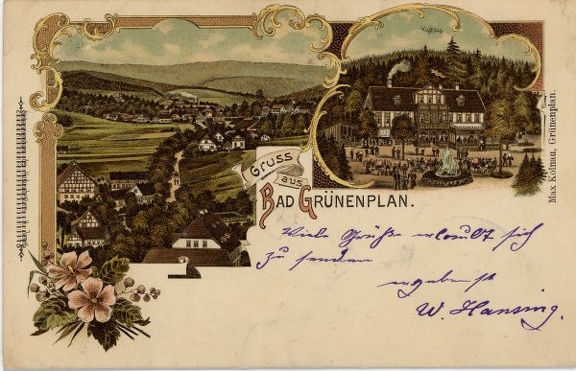 Kurhaus
Gruss
aus
BAD GRÜNENPLAN.
Max Kolnau, Grünenplan.
Viele Grüße erlaubt sich
zu senden
ergebenst
W. Hansing.